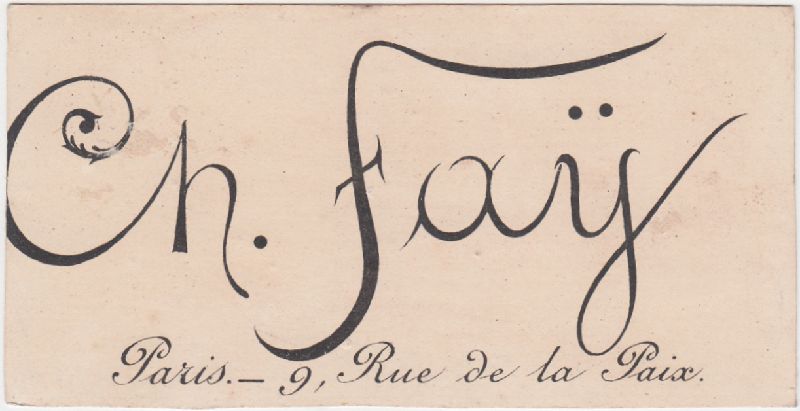 Ch. Faÿ
Paris. — 9, Rue de la Paix.